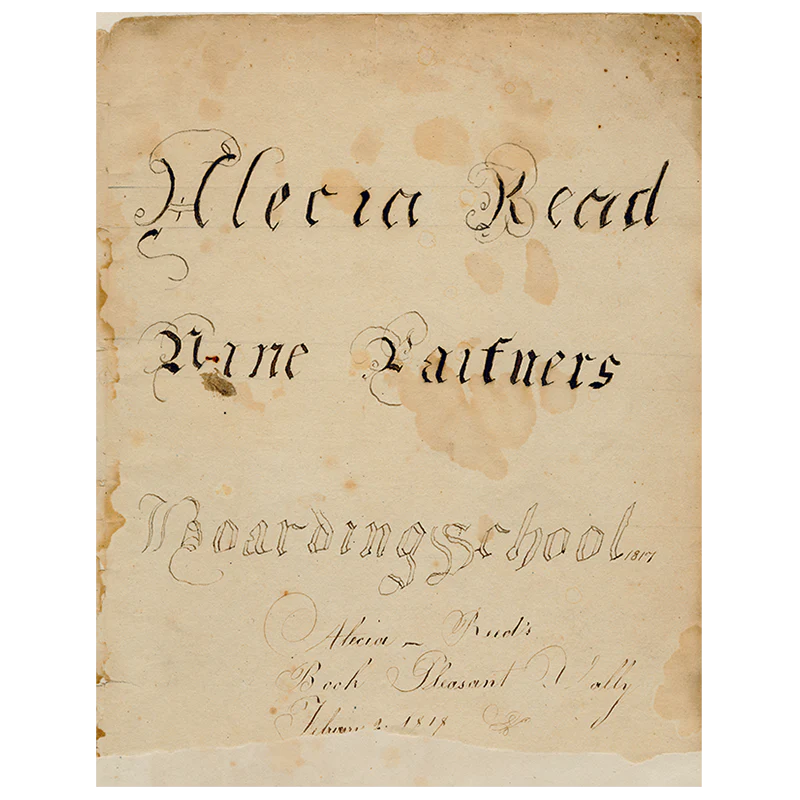 Alecia Read
Nine Partners
Boarding School 1817
Alecia – Read's
Book Pleasant Vally
2 1818